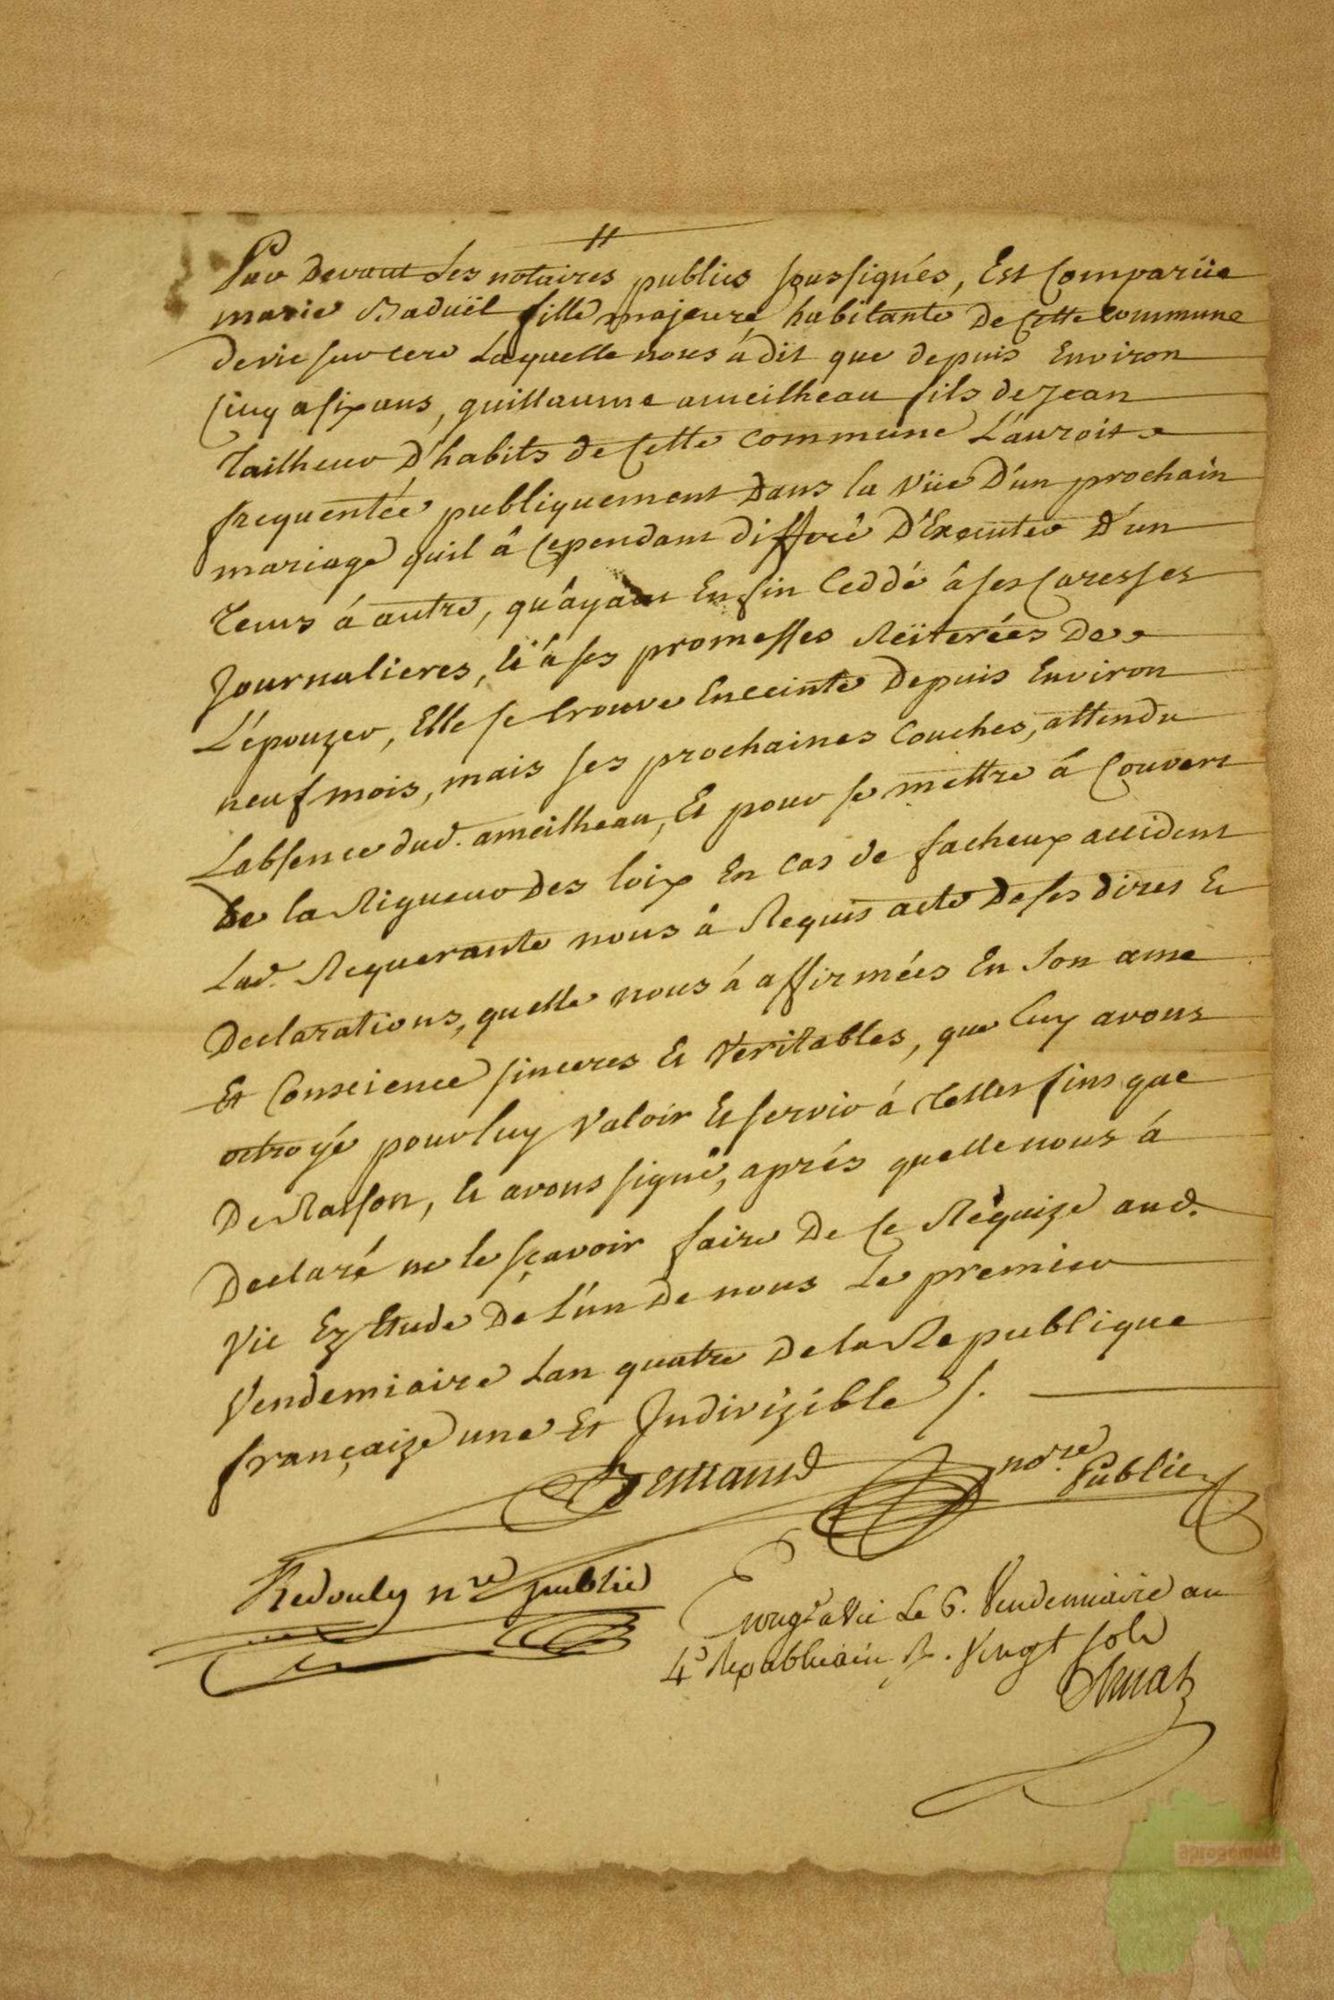 Par devant Les notaires publics soussignés, Est Comparüe
marie Baduël fille majeure habitante De Cette Commune
de vic sur cere Laquelle nous a dit que depuis Environ
Cinq a six ans, guillaume ameilheau fils de Jean
Tailheur D'habits de Cette Commune L'auroit
frequentée publiquement Dans la vüe D'un prochain
mariage quil â Cependant differé D'Executer D'un
Tems á autre, qu'ayant Enfin Ceddé â ses Caresses
Journalieres, Et â ses promesses Réïterées De
L'épouzer, Elle se trouve Enceinte Depuis Environ
neuf mois, mais ses prochaines Couches, attendu
Labsence dud. ameilheau, Et pour se mettre á Couvert
De la Rigueur Des loix En Cas de facheux accident
Lad. Requerante nous â Requis acte De ses dires Et
Declarations, quelle nous á affirmées En Son ame
Et Conscience sinceres Et Veritables, que Luy avons
octroyé pour luy Valoir Et servir á Telles fins que
De Raison, Et avons signé, aprés quelle nous á
Declaré ne le sçavoir faire De Ce Réquize aud.
Vic Ez Etude De L'un De nous Le premier
Vendemiaire Lan quatre De la Republique
françaize une Et Indivizible /.
nore Public
Redouly nre public
Enregé a Vic Le 6. Vendemiaire an
4e Republicain R. Vingt sols
aprogemere